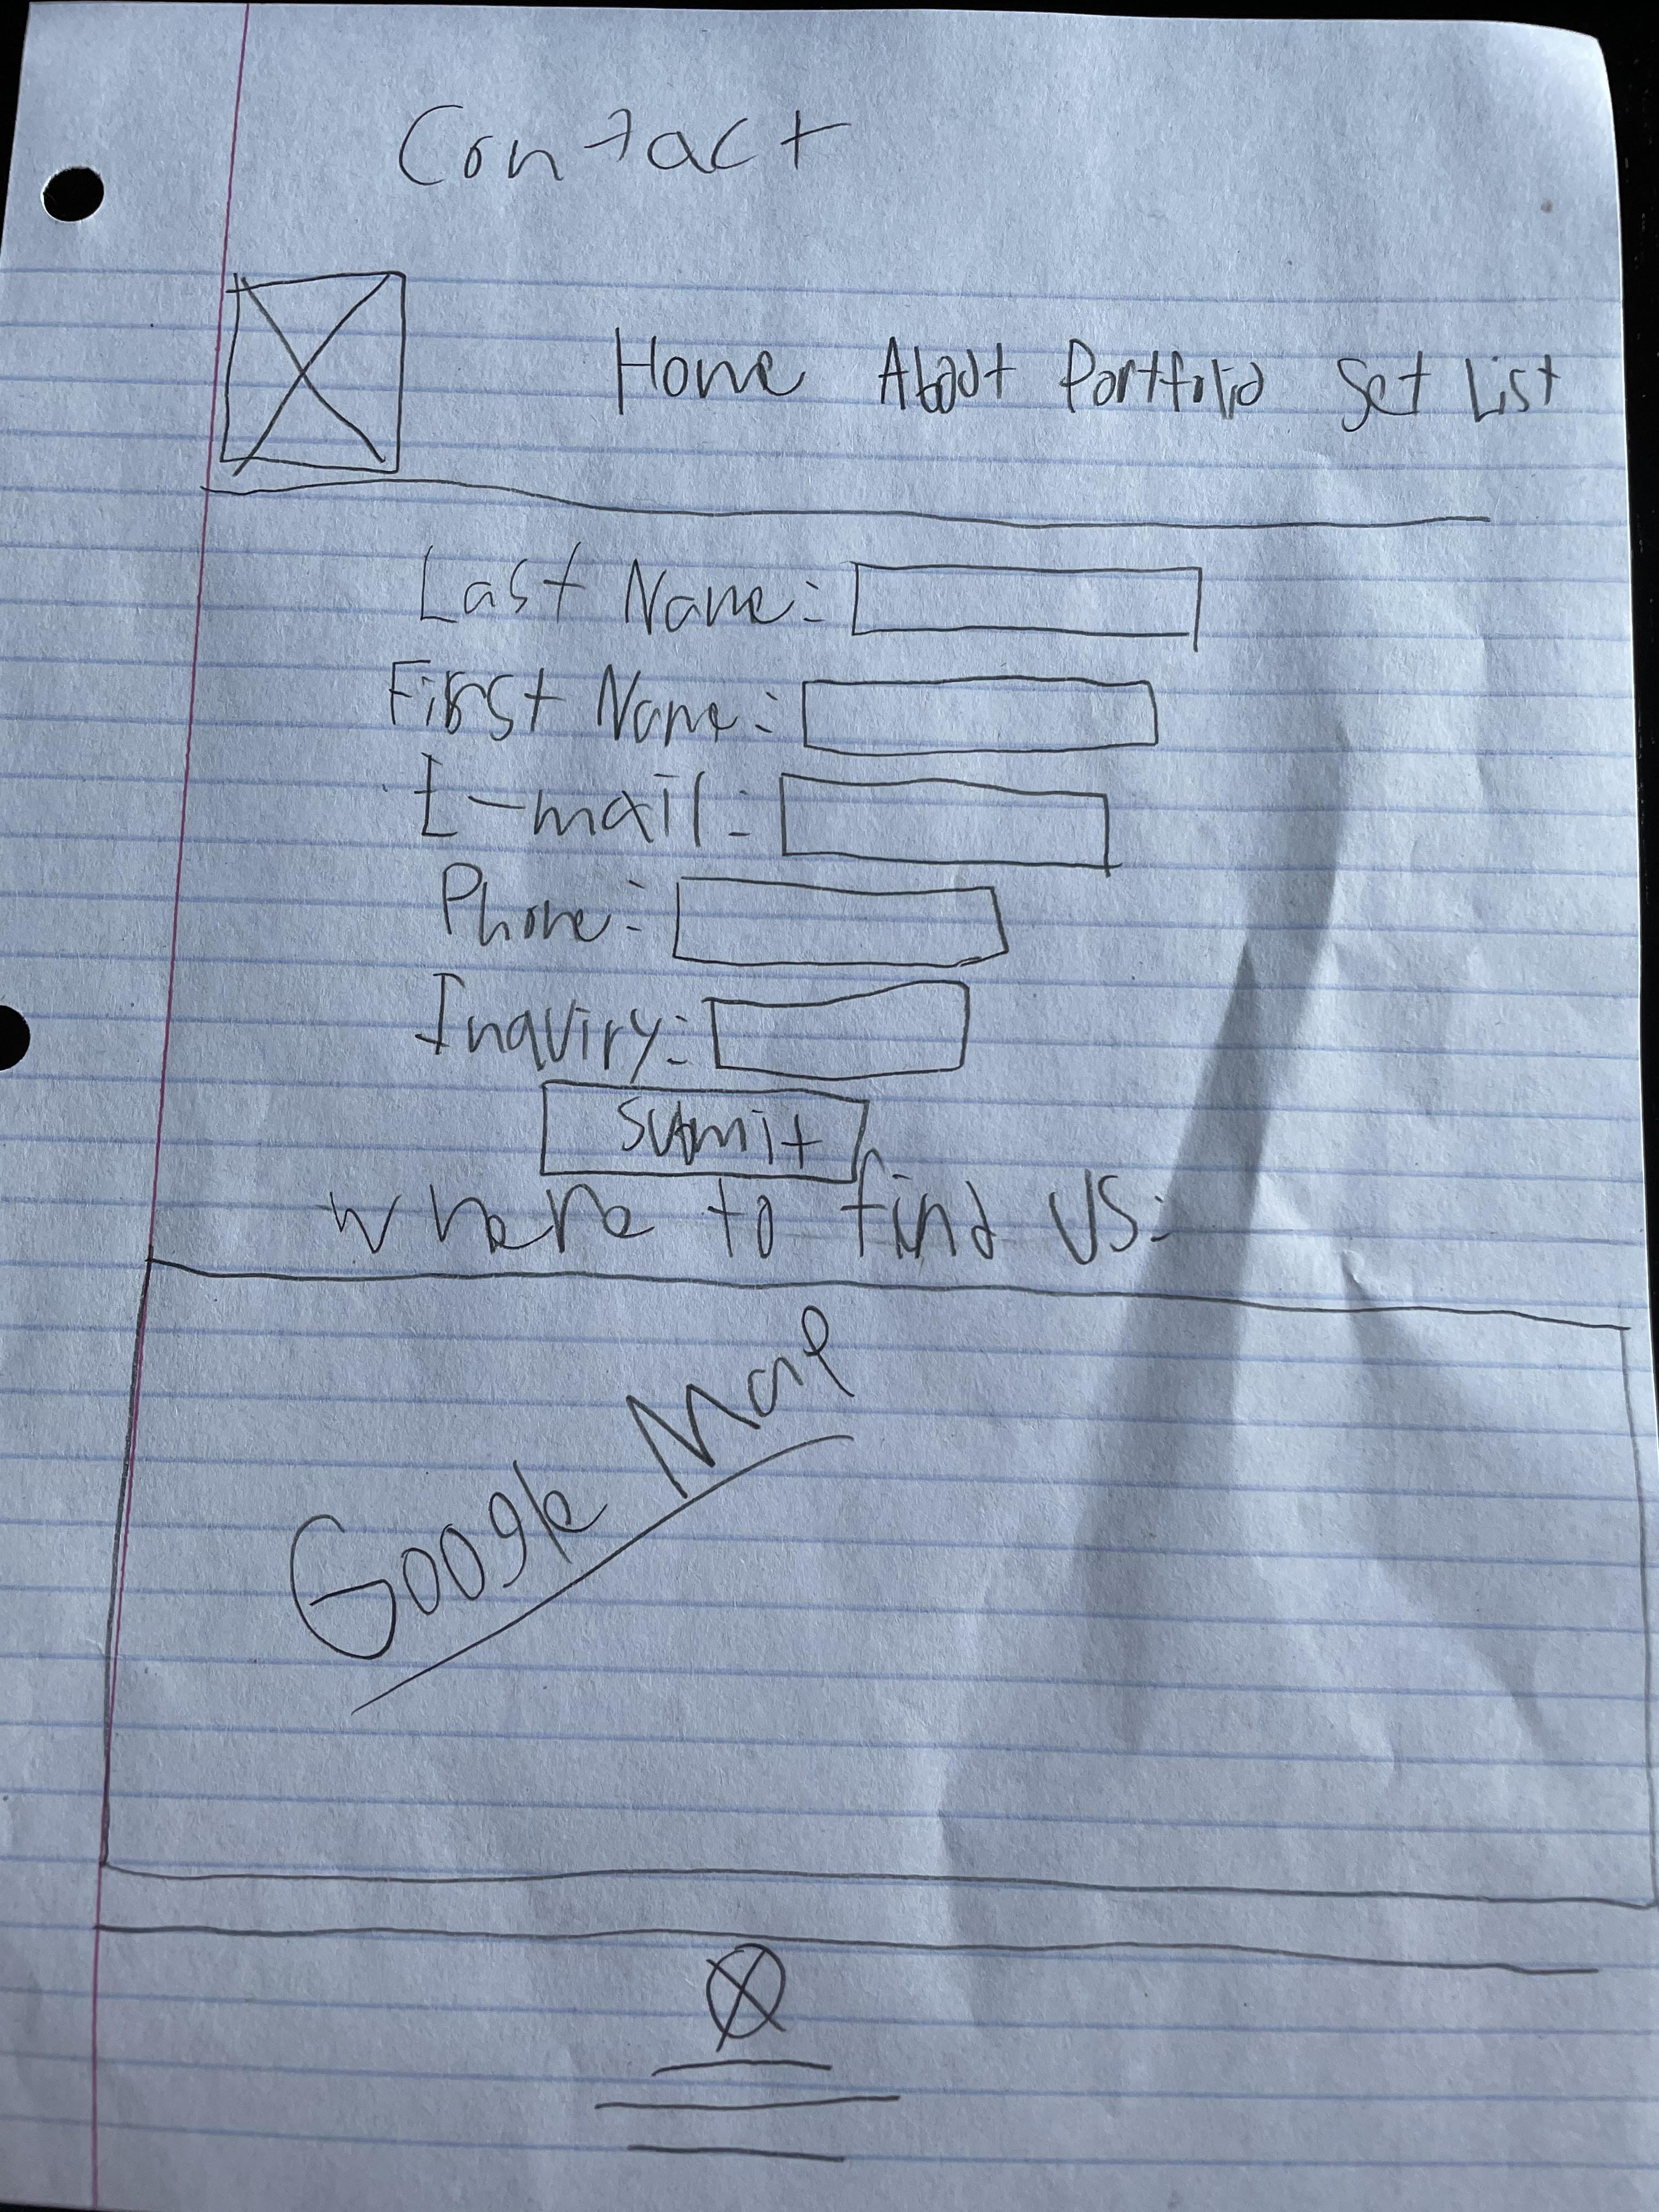 Contact
Home About Portfolio Set List
Last Name:
First Name:
E-mail:
Phone:
Inquiry:
Submit
Where to find US:
Google Map